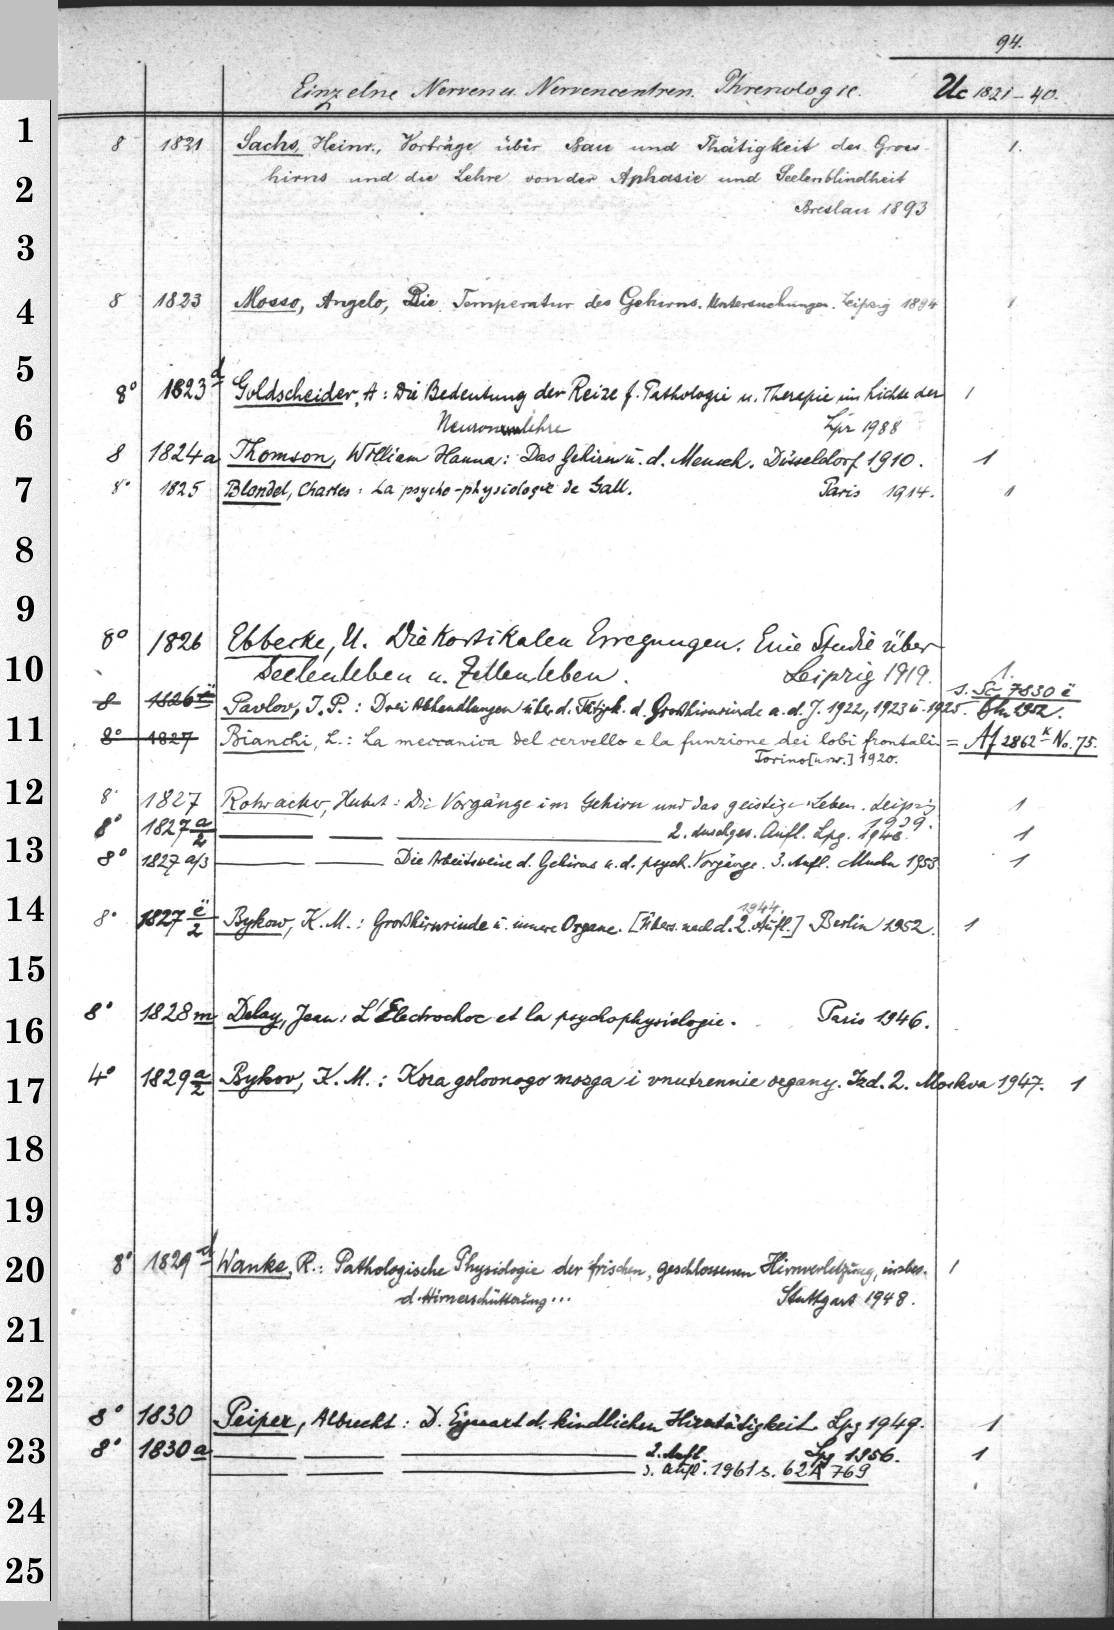 94.
Einzelne Nerven u. Nervencentren. Phrenologie. Uc 1821-40.
8 1821 Sachs, Heinr., Vorträge über Bau und Thätigkeit des Gross- 1.
hirns und die Lehre von der Aphasie und Seelenblindheit
Breslau 1893
8 1823 Mosso, Angelo, Die Temperatur des Gehirns. Untersuchungen. Leipzig 1894 1
8° 1823 d Goldscheider, A: Die Bedeutung der Reize f. Pathologie u. Therapie im Lichte der 1
Neuronlehre Lpz 1988
8 1824a Thomson, William Hanna: Das Gehirn u. d. Mensch. Düsseldorf 1910. 1
8° 1825 Blondel, Charles: La psycho-physiologie de Gall. Paris 1914. 1
8° 1826 Ebbecke, U. Die Kortikalen Erregungen. Eine Studie über
Seelenleben u. Zellenleben. Leipzig 1919. 1.
8 1826 ë Pavlov, I. P.: Drei Abhandlungen über d. Tätigk. d. Großhirnrinde a. d. J. 1922, 1923 u. 1925. s. Sc 7830 ë
8° 1827 Bianchi, L.: La meccanica del cervello e la funzione dei lobi frontali = Af 2862 K No. 75.
Torino [usw.] 1920.
8° 1827 Rohracher, Hubert: Die Vorgänge im Gehirn und das geistige Leben. Leipzig 1
1939.
8° 1827 a/2 2. durchges. Aufl. Lpg. 1948. 1
8° 1827 a/3 Die Arbeitsweise d. Gehirns u. d. psych. Vorgänge. 3. Aufl. Mnchn 1953 1
1944.
8° 1827 ë/2 Bykow, K. M.: Großhirnrinde u. innere Organe. [Übers. nach d. 2. Aufl.] Berlin 1952. 1
8° 1828 m Delay, Jean: L'Electrochoc et la psychophysiologie. Paris 1946.
4° 1829 a/2 Bykov, K. M.: Kora golovnogo mozga i vnutrennie organy. Izd. 2. Moskva 1947. 1
8° 1829 d Wanke, R.: Pathologische Physiologie der frischen, geschlossenen Hirnverletzung, insbes. 1
d. Hirnerschütterung... Stuttgart 1948.
8° 1830 Peiper, Albrecht: D. Eigenart d. kindlichen Hirntätigkeit Lpg 1949. 1
8° 1830 a 2. Aufl. Lpg 1956. 1
3. Aufl. 1961 s. 62 A 769
1
2
3
4
5
6
7
8
9
10
11
12
13
14
15
16
17
18
19
20
21
22
23
24
25